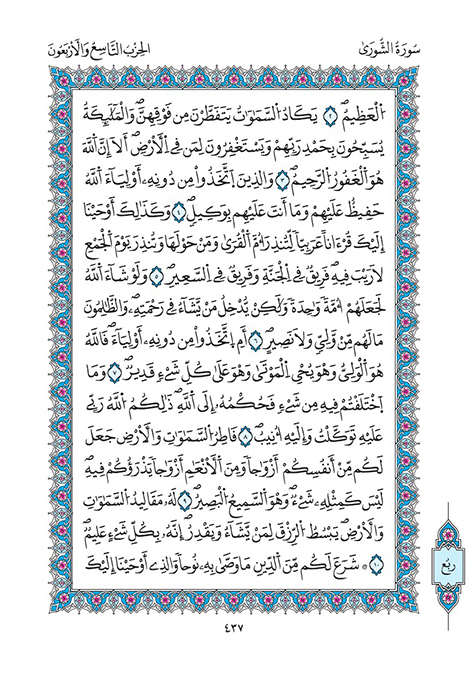 سُورَةُ الشُّورَىٰ
الحِزْبُ التَّاسِعُ وَالْأَرْبَعُونَ
اُ۬لْعَظِيمُۖ ٢ يَكَادُ اُ۬لسَّمَٰوَٰتُ يَتَفَطَّرْنَ مِن فَوْقِهِنَّۖ وَالْمَلَٰٓئِكَةُ
يُسَبِّحُونَ بِحَمْدِ رَبِّهِمْ وَيَسْتَغْفِرُونَ لِمَن فِے اِ۬لَارْضِۖ أَلَآ إِنَّ اَ۬للَّهَ
هُوَ اَ۬لْغَفُورُ اُ۬لرَّحِيمُۖ ٣ وَالذِينَ اَ۪تَّخَذُواْ مِن دُونِهِۦٓ أَوْلِيَآءَ اَ۬للَّهُ
حَفِيظٌ عَلَيْهِمْ وَمَآ أَنتَ عَلَيْهِم بِوَكِيلٖۖ ٤ وَكَذَٰلِكَ أَوْحَيْنَآ
إِلَيْكَ قُرْءَاناً عَرَبِيّاٗ لِّتُنذِرَ أُمَّ اَ۬لْقُر۪ىٰ وَمَنْ حَوْلَهَا وَتُنذِرَ يَوْمَ اَ۬لْجَمْعِ
لَا رَيْبَ فِيهِۖ فَرِيقٞ فِے اِ۬لْجَنَّةِ وَفَرِيقٞ فِے اِ۬لسَّعِيرِۖ ٥ وَلَوْ شَآءَ اَ۬للَّهُ
لَجَعَلَهُمْ أُمَّةٗ وَٰحِدَةٗ وَلَٰكِنْ يُّدْخِلُ مَنْ يَّشَآءُ فِے رَحْمَتِهِۦۖ وَالظَّٰلِمُونَ
مَا لَهُم مِّنْ وَّلِيّٖ وَلَا نَصِيرٍۖ ٦ أَمِ اِ۪تَّخَذُواْ مِن دُونِهِۦٓ أَوْلِيَآءَۖ فَاللَّهُ
هُوَ اَ۬لْوَلِيُّ وَهُوَ يُحْيِ اِ۬لْمَوْت۪ىٰ وَهُوَ عَلَىٰ كُلِّ شَےْءٖ قَدِيرٞۖ ٧ وَمَا
اَ۪خْتَلَفْتُمْ فِيهِ مِن شَےْءٖ فَحُكْمُهُۥٓ إِلَى اَ۬للَّهِۖ ذَٰلِكُمُ اُ۬للَّهُ رَبِّے
عَلَيْهِ تَوَكَّلْتُ وَإِلَيْهِ أُنِيبُۖ ٨ فَاطِرُ اُ۬لسَّمَٰوَٰتِ وَالَارْضِۖ جَعَلَ
لَكُم مِّنَ اَنفُسِكُمُۥٓ أَزْوَٰجاٗ وَمِنَ اَ۬لَانْعَٰمِ أَزْوَٰجاٗ يَذْرَؤُكُمْ فِيهِۖ
لَيْسَ كَمِثْلِهِۦ شَےْءٞۖ وَهُوَ اَ۬لسَّمِيعُ اُ۬لْبَصِيرُۖ ٩ لَهُۥ مَقَالِيدُ اُ۬لسَّمَٰوَٰتِ
وَالَارْضِۖ يَبْسُطُ اُ۬لرِّزْقَ لِمَنْ يَّشَآءُ وَيَقْدِرُۖ إِنَّهُۥ بِكُلِّ شَےْءٍ عَلِيمٞۖ
١٠ ۞ شَرَعَ لَكُم مِّنَ اَ۬لدِّينِ مَا وَصّ۪ىٰ بِهِۦ نُوحاٗ وَالذِےٓ أَوْحَيْنَآ إِلَيْكَ
رُبُع
٤٣٧